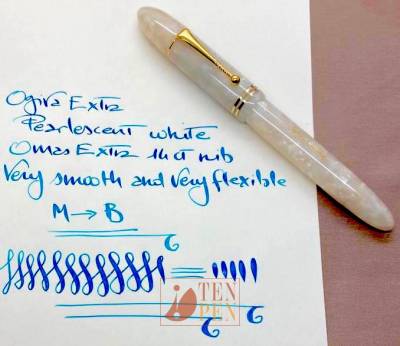 Ogiva Extra
Pearlescent white
Omas Extra 14ct nib
Very smooth and very flexible
M → B
TEN
PEN